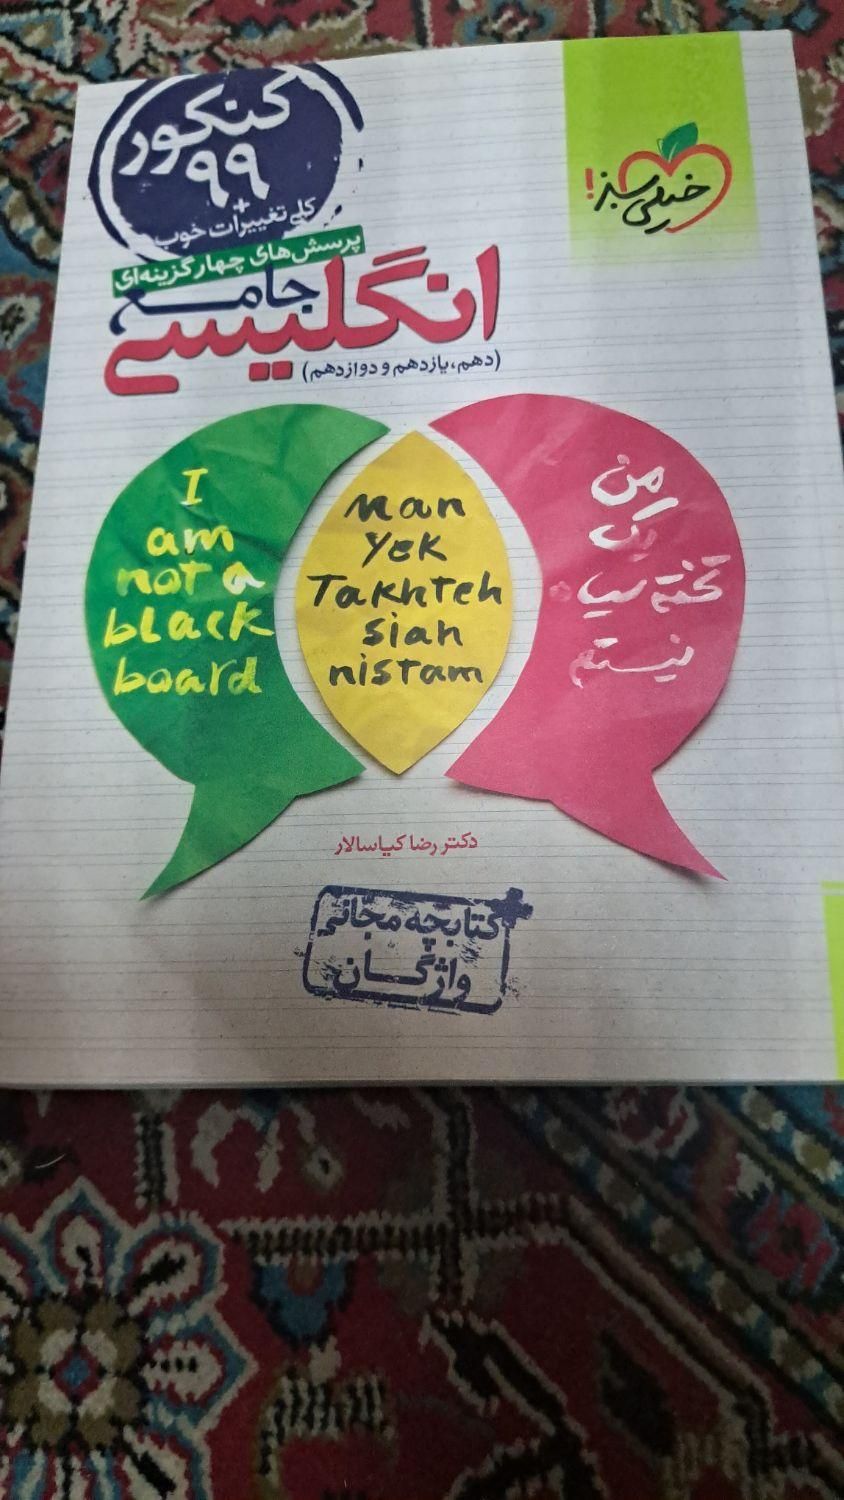 کنکور
۹۹
+
کلی تغییرات خوب
خیلی سبز!
پرسش‌های چهارگزینه‌ای
جامع
انگلیسی
(دهم، یازدهم و دوازدهم)
I
am
not a
black
board
Man
Yek
Takhteh
siah
nistam
من
یک
تخته سیاه
نیستم
دکتر رضا کیاسالار
+
کتابچه مجانی
واژگان